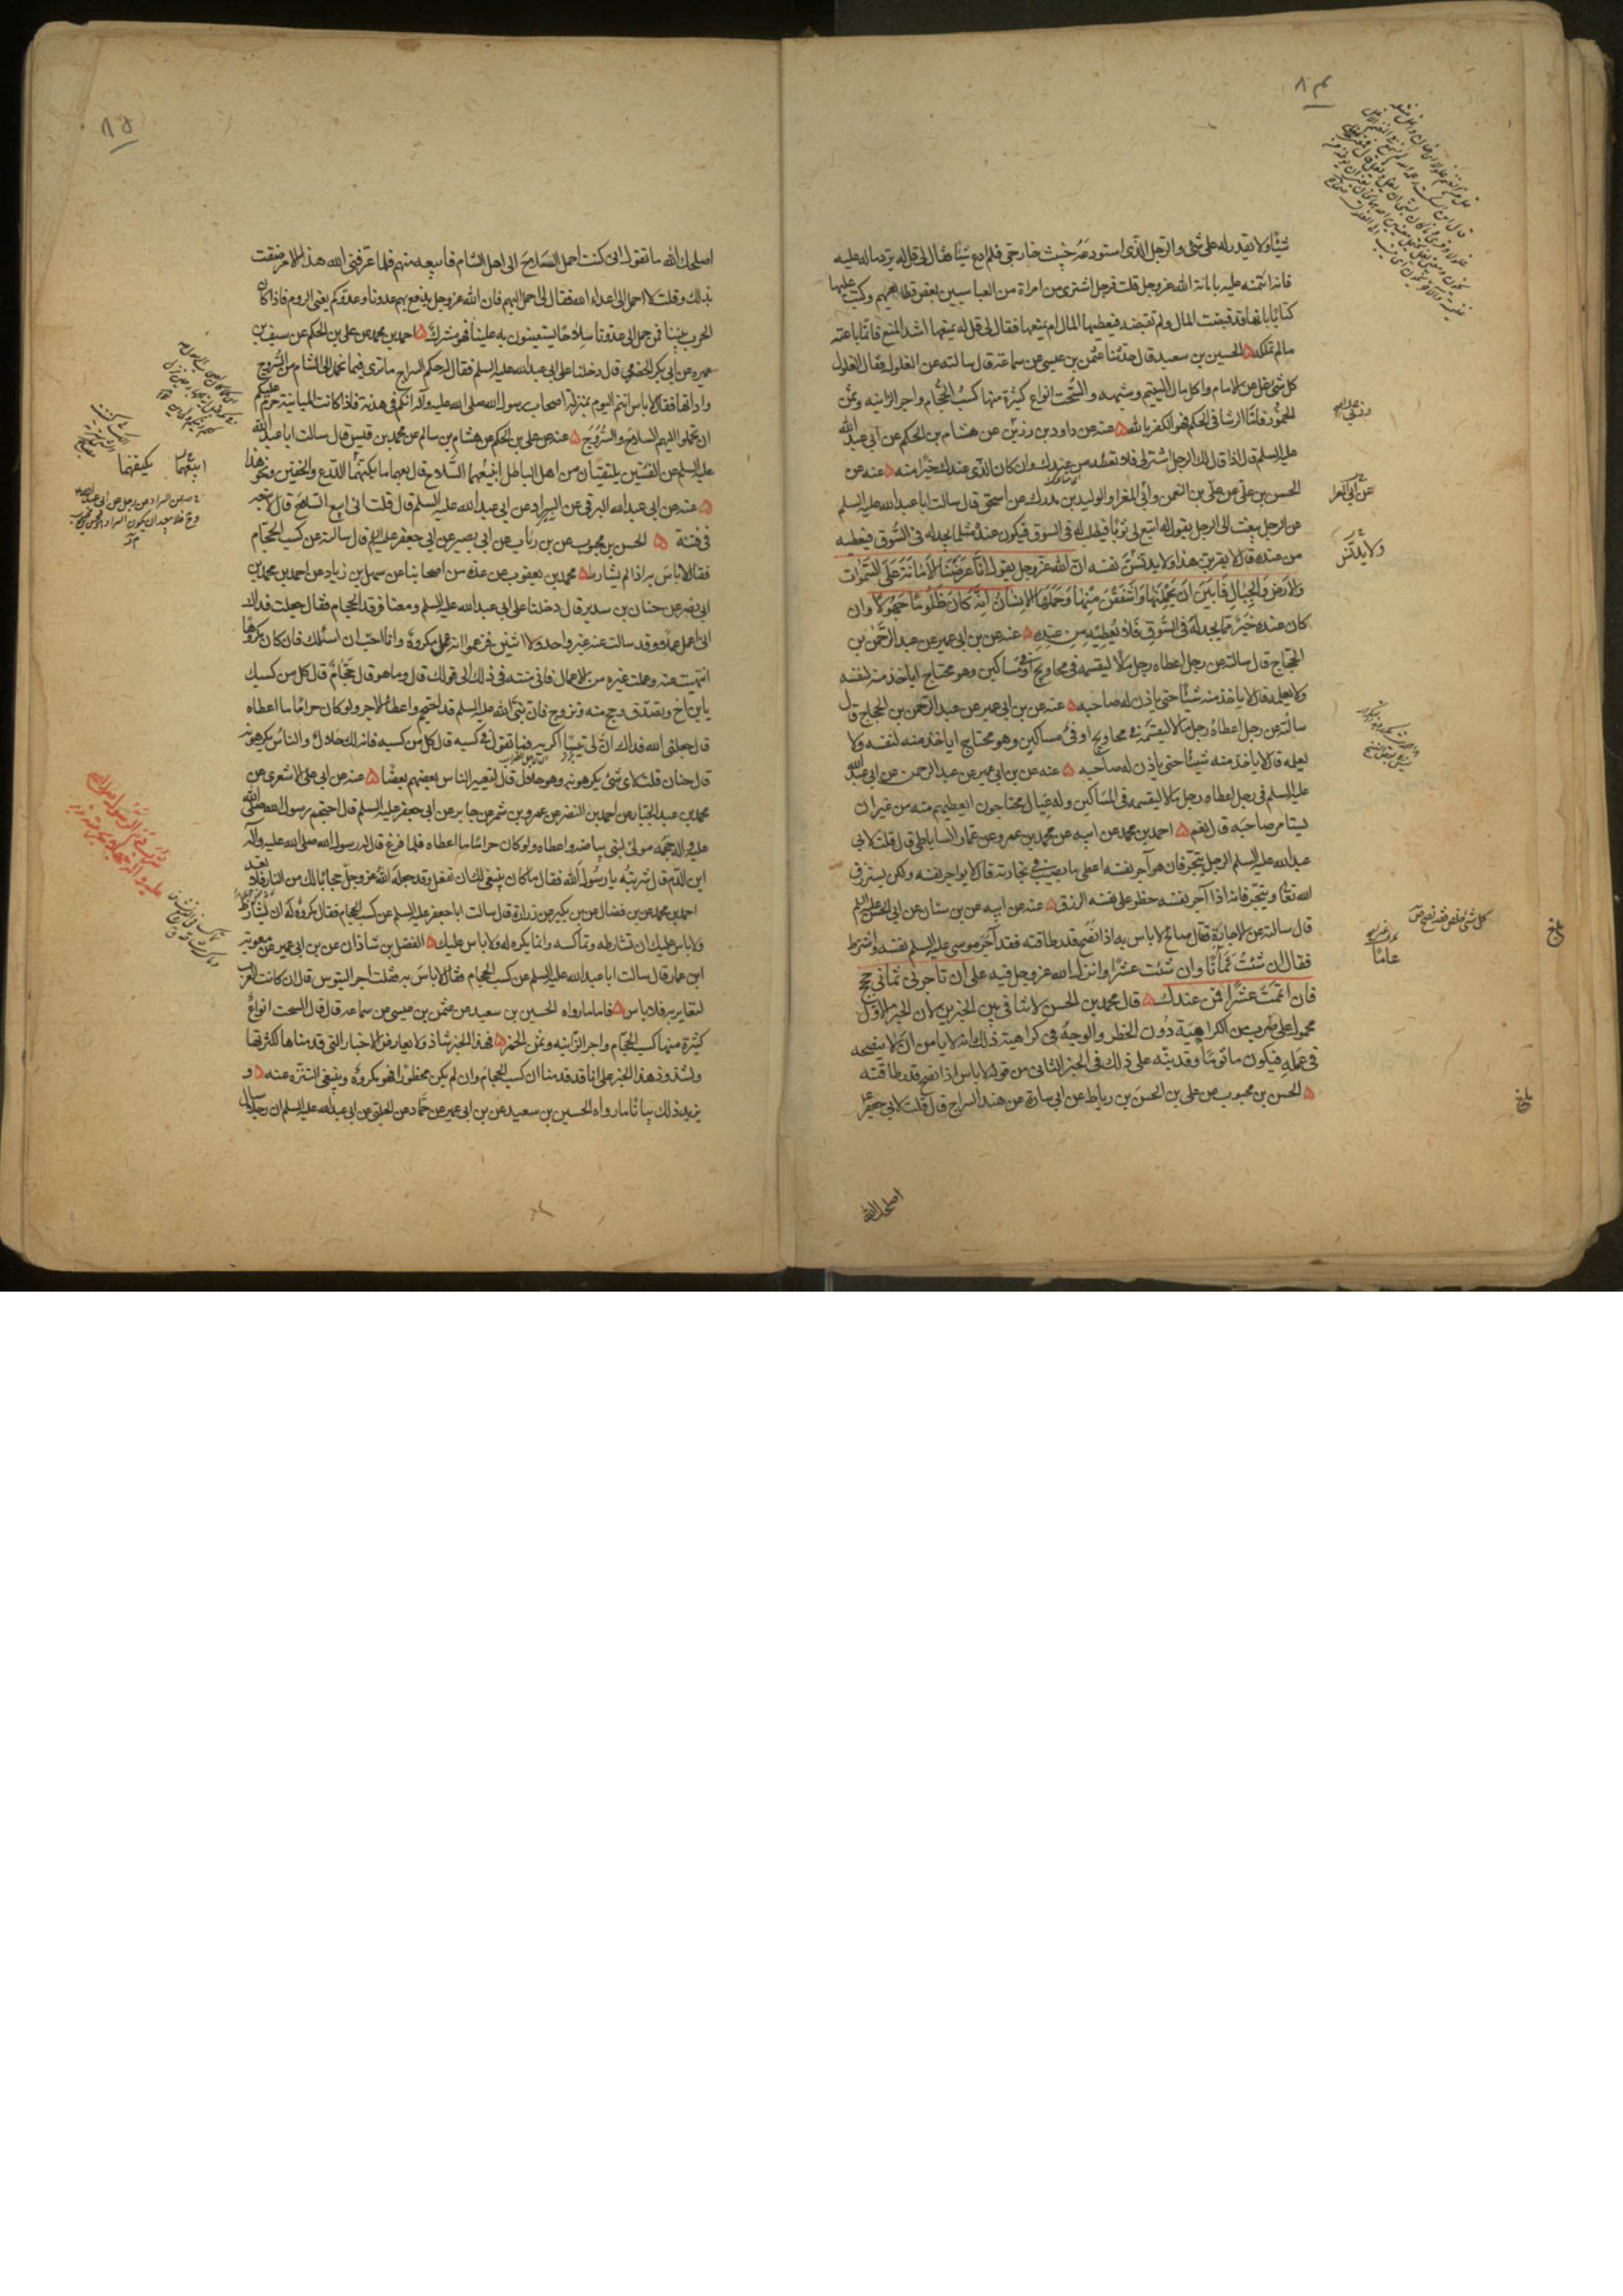 ٨٤
شيئا ولا يقدر له على شئ والرجل الذى استودعه خبيث خارجى فلم ادع شيئا فقال لى قل له يرد ماله عليه
فانه ائتمنه عليه بامانة الله عز وجل قلت فرجل اشترى من امراة من العباسيين بعض قطايعهم وكتب عليها
كتابا بانها قد قبضت المال ولم تقبضه فيعطيها المال ام يمنعها فقال لى قل له يمنعها اشد المنع فانما باعته
مالم تملكه ۵ الحسين بن سعيد قال حدثنا عثمن بن عيسى عن سماعة قال سالته عن الغلول فقال الغلول
كل شئ غل من الامام واكل مال اليتيم وشبهه والسحت انواع كثيرة منها كسب الحجام واجر الزانيه وثمن
الخمور فاما الرشا فى الحكم فهو الكفر بالله ۵ عنه عن داود بن رزين عن هشام بن الحكم عن ابى عبد الله
عليه السلم قال اذا قال لك الرجل اشتر لى فلا تعطه من عندك وان كان الذى عندك خيرا منه ۵ عنه عن
الحسن بن على عن على بن النعمن وابى المغرا والوليد بن مدرك عن اسحق قال سالت ابا عبد الله عليه السلم
عن الرجل يبعث الى الرجل يقول له ابتع لى ثوبا فيطلب له فى السوق فيكون عنده مثل ما يجد له فى السوق فيعطيه
من عنده قال لا يقربن هذا ولا يدنس نفسه ان الله عز وجل يقول انا عرضنا الامانة على السموات
والارض والجبال فابين ان يحملنها واشفقن منها وحملها الانسان انه كان ظلوما جهولا وان
كان عنده خير مما يجد له فى السوق فلا يعطيه من عنده ۵ عنه عن بن ابى عمير عن عبد الرحمن بن
الحجاج قال سالته عن رجل اعطاه رجل مالا ليقسمه فى محاويج او فى مساكين وهو محتاج اياخذ منه لنفسه
ولا يعلمه قال لا ياخذ منه شيئا حتى ياذن له صاحبه ۵ عنه عن بن ابى عمير عن عبد الرحمن بن الحجاج قال
سالته عن رجل اعطاه رجل مالا ليقسمه فى محاويج او فى مساكين وهو محتاج اياخذ منه لنفسه ولا
يعلمه قال لا ياخذ منه شيئا حتى ياذن له صاحبه ۵ عنه عن بن ابى عمير عن عبد الرحمن عن ابى عبد الله
عليه السلم فى رجل اعطاه رجل مالا ليقسمه فى المساكين وله عيال محتاجون ايعطيهم منه من غير ان
يستامر صاحبه قال نعم ۵ احمد بن محمد عن ابيه عن محمد بن عمرو عن عمار الساباطى قال قلت لابى
عبد الله عليه السلم الرجل يتجر فان هو آجر نفسه اعطى ما يصيب فى تجارته قال لا يواجر نفسه ولكن يسترزق
الله تعالى ويتجر فانه اذا آجر نفسه حظر على نفسه الرزق ۵ عنه عن ابيه عن بن سنان عن ابى الحسن عليه السلم
قال سالته عن الاجارة فقال صالح لا باس به اذا نصح قدر طاقته فقد آجر موسى عليه السلم نفسه واشترط
فقال ان شئت ثمانا وان شئت عشرا وانزل الله عز وجل فيه على ان تاجرنى ثمانى حجج
فان اتممت عشرا فمن عندك ۵ قال محمد بن الحسن لا تنافى بين الخبرين لان الخبر الاول
محمول على ضرب من الكراهية دون الحظر والوجه فى كراهية ذلك انه لا يامن ان لا ينصحه
فى عمله فيكون ماثوما وقد نبه على ذلك فى الخبر الثانى من قوله لا باس اذا نصح قدر طاقته
۵ الحسن بن محبوب عن على بن الحسن بن رباط عن ابى سارة عن هند السراج قال قلت لابى جعفر
عن ابى المغرا
ولا يدنس
عامّا
بلغ
بلغ
اصلحك الله
٨٥
اصلحك الله ما تقول انى كنت احمل السلاح الى اهل الشام فابيعه منهم فلما عرفنى الله هذا الامر ضقت
بذلك وقلت لا احمل الى اعداء الله فقال لى احمل اليهم فان الله عز وجل يدفع بهم عدونا وعدوكم يعنى الروم فاذا كان
الحرب بيننا فمن حمل الى عدونا سلاحا يستعينون به علينا فهو مشرك ۵ احمد بن محمد عن على بن الحكم عن سيف بن
عميره عن ابى بكر الحضرمى قال دخلنا على ابى عبد الله عليه السلم فقال له حكم السراج ما ترى فيما نحمل الى الشام من السروج
واداتها فقال لا باس انتم اليوم بمنزلة اصحاب رسول الله صلى الله عليه وآله انكم فى هدنة فاذا كانت المباينة حرم عليكم
ان تحملوا اليهم السلاح والسروج ۵ عنه عن على بن الحكم عن هشام بن سالم عن محمد بن قيس قال سالت ابا عبد الله
عليه السلم عن الفئتين يلتقيان من اهل الباطل ابيعهما السلاح قال بعهما ما يكنهما الدرع والخفين ونحو هذا
۵ عنه عن ابى عبد الله البرقى عن السراد عن ابى عبد الله عليه السلم قال قلت انى ابيع السلاح قال لا تبعه
فى فتنة ۵ الحسن بن محبوب عن بن رياب عن ابى بصير عن ابى جعفر عليه السلم قال سالته عن كسب الحجام
فقال لا باس به اذا لم يشارط ۵ محمد بن يعقوب عن عدة من اصحابنا عن سهل بن زياد عن احمد بن محمد بن
ابى نصر عن حنان بن سدير قال دخلنا على ابى عبد الله عليه السلم ومعنا فرقد الحجام فقال جعلت فداك
انى اعمل عملا وقد سالت عنه غير واحد ولا اثنين فزعموا انه عمل مكروه وانا احب ان اسئلك فان كان مكروها
انتهيت عنه وعملت غيره من الاعمال فانى منته فى ذلك الى قولك قال وما هو قال حجام قال كل من كسبك
يا بن اخ وتصدق وحج منه وتزوج فان نبى الله عليه السلم قد احتجم واعطى الاجر ولو كان حراما ما اعطاه
قال جعلنى الله فداك ان لى تيسا اكريه فما تقول فى كسبه قال كل من كسبه فانه لك حلال والناس يكرهونه
قال حنان قلت لاى شئ يكرهونه وهو حلال قال لتعيير الناس بعضهم بعضا ۵ عنه عن ابى على الاشعرى عن
محمد بن عبد الجبار عن احمد بن النضر عن عمرو بن شمر عن جابر عن ابى جعفر عليه السلم قال احتجم رسول الله صلى الله
عليه وآله حجمه مولى لبنى بياضه واعطاه ولو كان حراما ما اعطاه فلما فرغ قال له رسول الله صلى الله عليه وآله
اين الدم قال شربته يا رسول الله فقال ما كان ينبغى لك ان تفعل وقد جعله الله عز وجل حجابا لك من النار فلا تعد
احمد بن محمد عن بن فضال عن بن بكير عن زرارة قال سالت ابا جعفر عليه السلم عن كسب الحجام فقال مكروه له ان يشارط
ولا باس عليك ان تشارطه وتماكسه وانما يكره له ولا باس عليك ۵ الفضل بن شاذان عن بن ابى عمير عن معوية
ابن عمار قال سالت ابا عبد الله عليه السلم عن كسب الحجام فقال لا باس به قلت اجر التيوس قال ان كانت العرب
لتعاير به فلا باس ۵ فاما ما رواه الحسين بن سعيد عن عثمن بن عيسى عن سماعه قال قال السحت انواع
كثيرة منها كسب الحجام واجر الزانيه وثمن الخمر ۵ فهذا الخبر شاذ ولا يعارض الاخبار التى قدمناها لكثرتها
ولشذوذ هذا الخبر على انا قد قدمنا ان كسب الحجام وان لم يكن محظورا فهو مكروه وينبغى التنزه عنه ۵ و
يزيد ذلك بيانا ما رواه الحسين بن سعيد عن بن ابى عمير عن حماد عن الحلبى عن ابى عبد الله عليه السلم ان رجلا سال
ابيعهما
يكنفهما